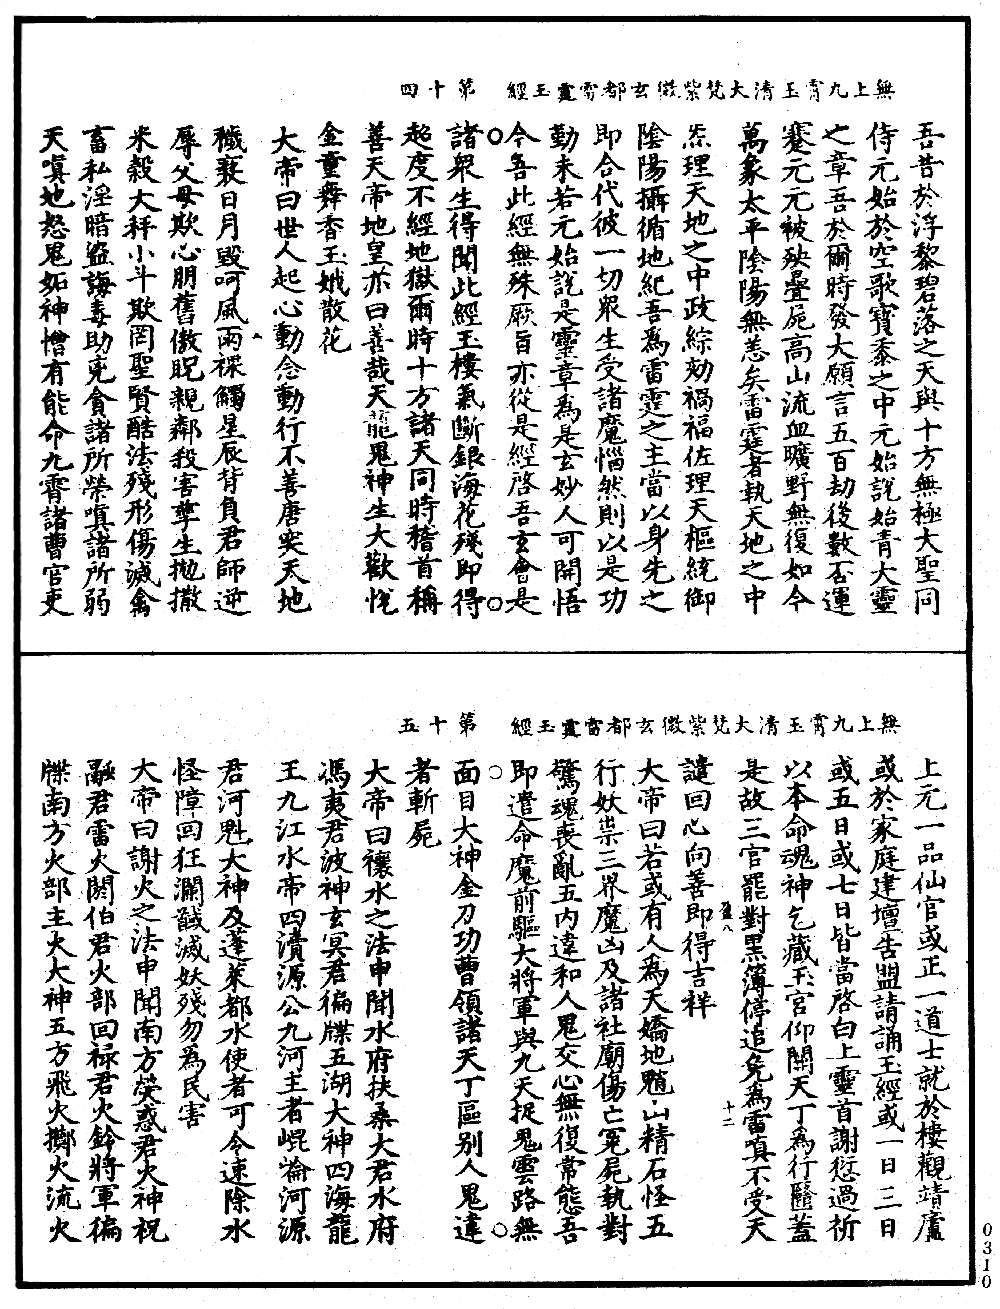 無上九霄玉清大梵紫微玄都雷霆玉經　第十四
吾昔於浮黎碧落之天與十方無極大聖同
侍元始於空歌寶黍之中元始說始青大靈
之章吾於爾時發大願言五百劫後數否運
蹇元元被殃疊屍高山流血曠野無復如今
萬象太平陰陽無恙矣雷霆者執天地之中
炁理天地之中政綜劾禍福佐理天樞統御
陰陽攝循地紀吾為雷霆之主當以身先之
即合代彼一切眾生受諸魔惱然則以是功
勤未若元始說是靈章為是玄妙人可開悟
今吾此經無殊厥旨亦從是經啓吾玄會是
諸眾生得聞此經玉樓氣斷銀海花殘即得
超度不經地獄爾時十方諸天同時稽首稱
善天帝地皇亦曰善哉天龍鬼神生大歡悅
金童彝香玉娥散花
大帝曰世人起心動念動行不善唐突天地
穢褻日月毀呵風雨裸觸星辰背負君師逆
辱父母欺心朋舊傲睨親鄰殺害孽生拋撒
米穀大秤小斗欺罔聖賢酷法殘形傷滅禽
畜私淫暗盜誨毒助兇貪諸所榮嗔諸所弱
天嗔地怒鬼妬神憎有能命九霄諸曹官吏
無上九霄玉清大梵紫微玄都雷霆玉經　第十五
上元一品仙官或正一道士就於樓觀靖廬
或於家庭建壇告盟請誦玉經或一日三日
或五日或七日皆當啓白上靈首謝愆過祈
以本命魂神乞藏玉宮仰關天丁為行醫蓋
是故三官罷對黑簿停追免為雷嗔不受天
譴回心向善即得吉祥
大帝曰若或有人為天嬌地魈山精石怪五
行妖祟三界魔凶及諸社廟傷亡冤屍執對
驚魂喪亂五內違和人鬼交心無復常態吾
即遣命魔前驅大將軍與九天捉鬼雲路無
面目大神金刀功曹領諸天丁區別人鬼違
者斬屍
大帝曰禳水之法申聞水府扶桑大君水府
馮夷君波神玄冥君徧牒五湖大神四海龍
王九江水帝四瀆源公九河主者崐崘河源
君河魁大神及蓬萊都水使者可令速除水
怪障回狂瀾馘滅妖殘勿為民害
大帝曰謝火之法申聞南方熒惑君火神祝
融君雷火閼伯君火部回祿君火鈴將軍徧
牒南方火部主火大神五方飛火擲火流火
十二
0310